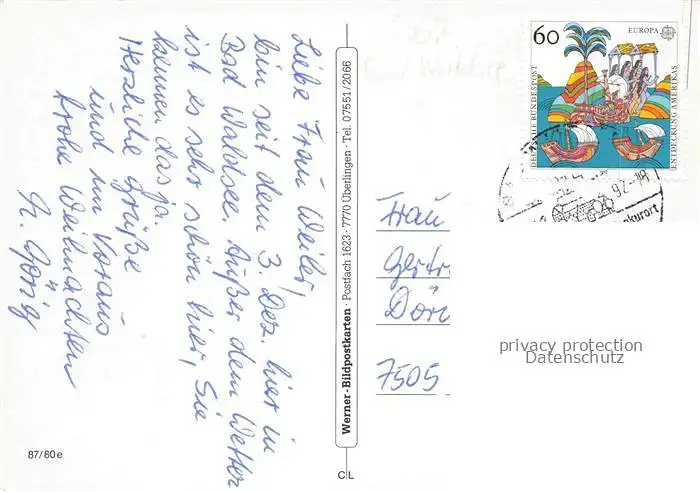 Liebe Frau Weiler,
bin seit dem 3. Dez. hier in
Bad Waldsee. Außer dem Wetter
ist es sehr schön hier, Sie
kennen das ja.
Herzliche Grüße
und im Voraus
frohe Weihnachten
87/80e
Werner-Bildpostkarten · Postfach 1623 · 7770 Überlingen · Tel. 07551/2066
C L
60
EUROPA
DEUTSCHE BUNDESPOST
ENTDECKUNG AMERIKAS
Frau
Gertr
Dör
7505
privacy protection
Datenschutz